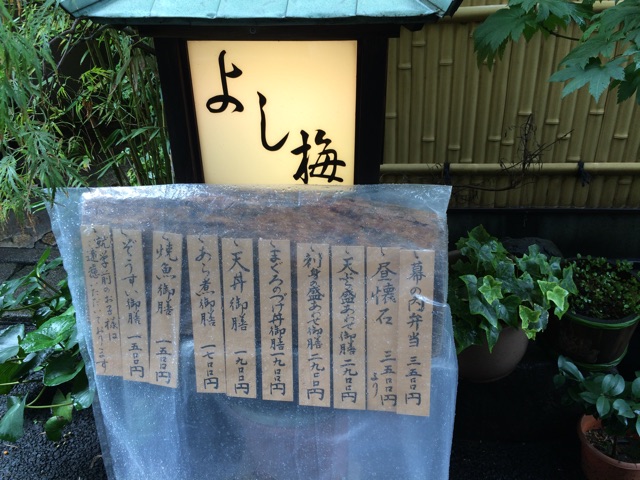 よし梅
幕の内弁当 三五〇〇円
昼懐石 三五〇〇円より
天ぷら盛合わせ御膳 一九〇〇円
刺身の盛合わせ御膳 二九〇〇円
まぐろのづけ丼御膳 一九〇〇円
天丼御膳 一九〇〇円
あら煮御膳 一七〇〇円
焼魚御膳 一五〇〇円
ぞうすい御膳 一五〇〇円
就学前のお子様は
遠慮いただいております